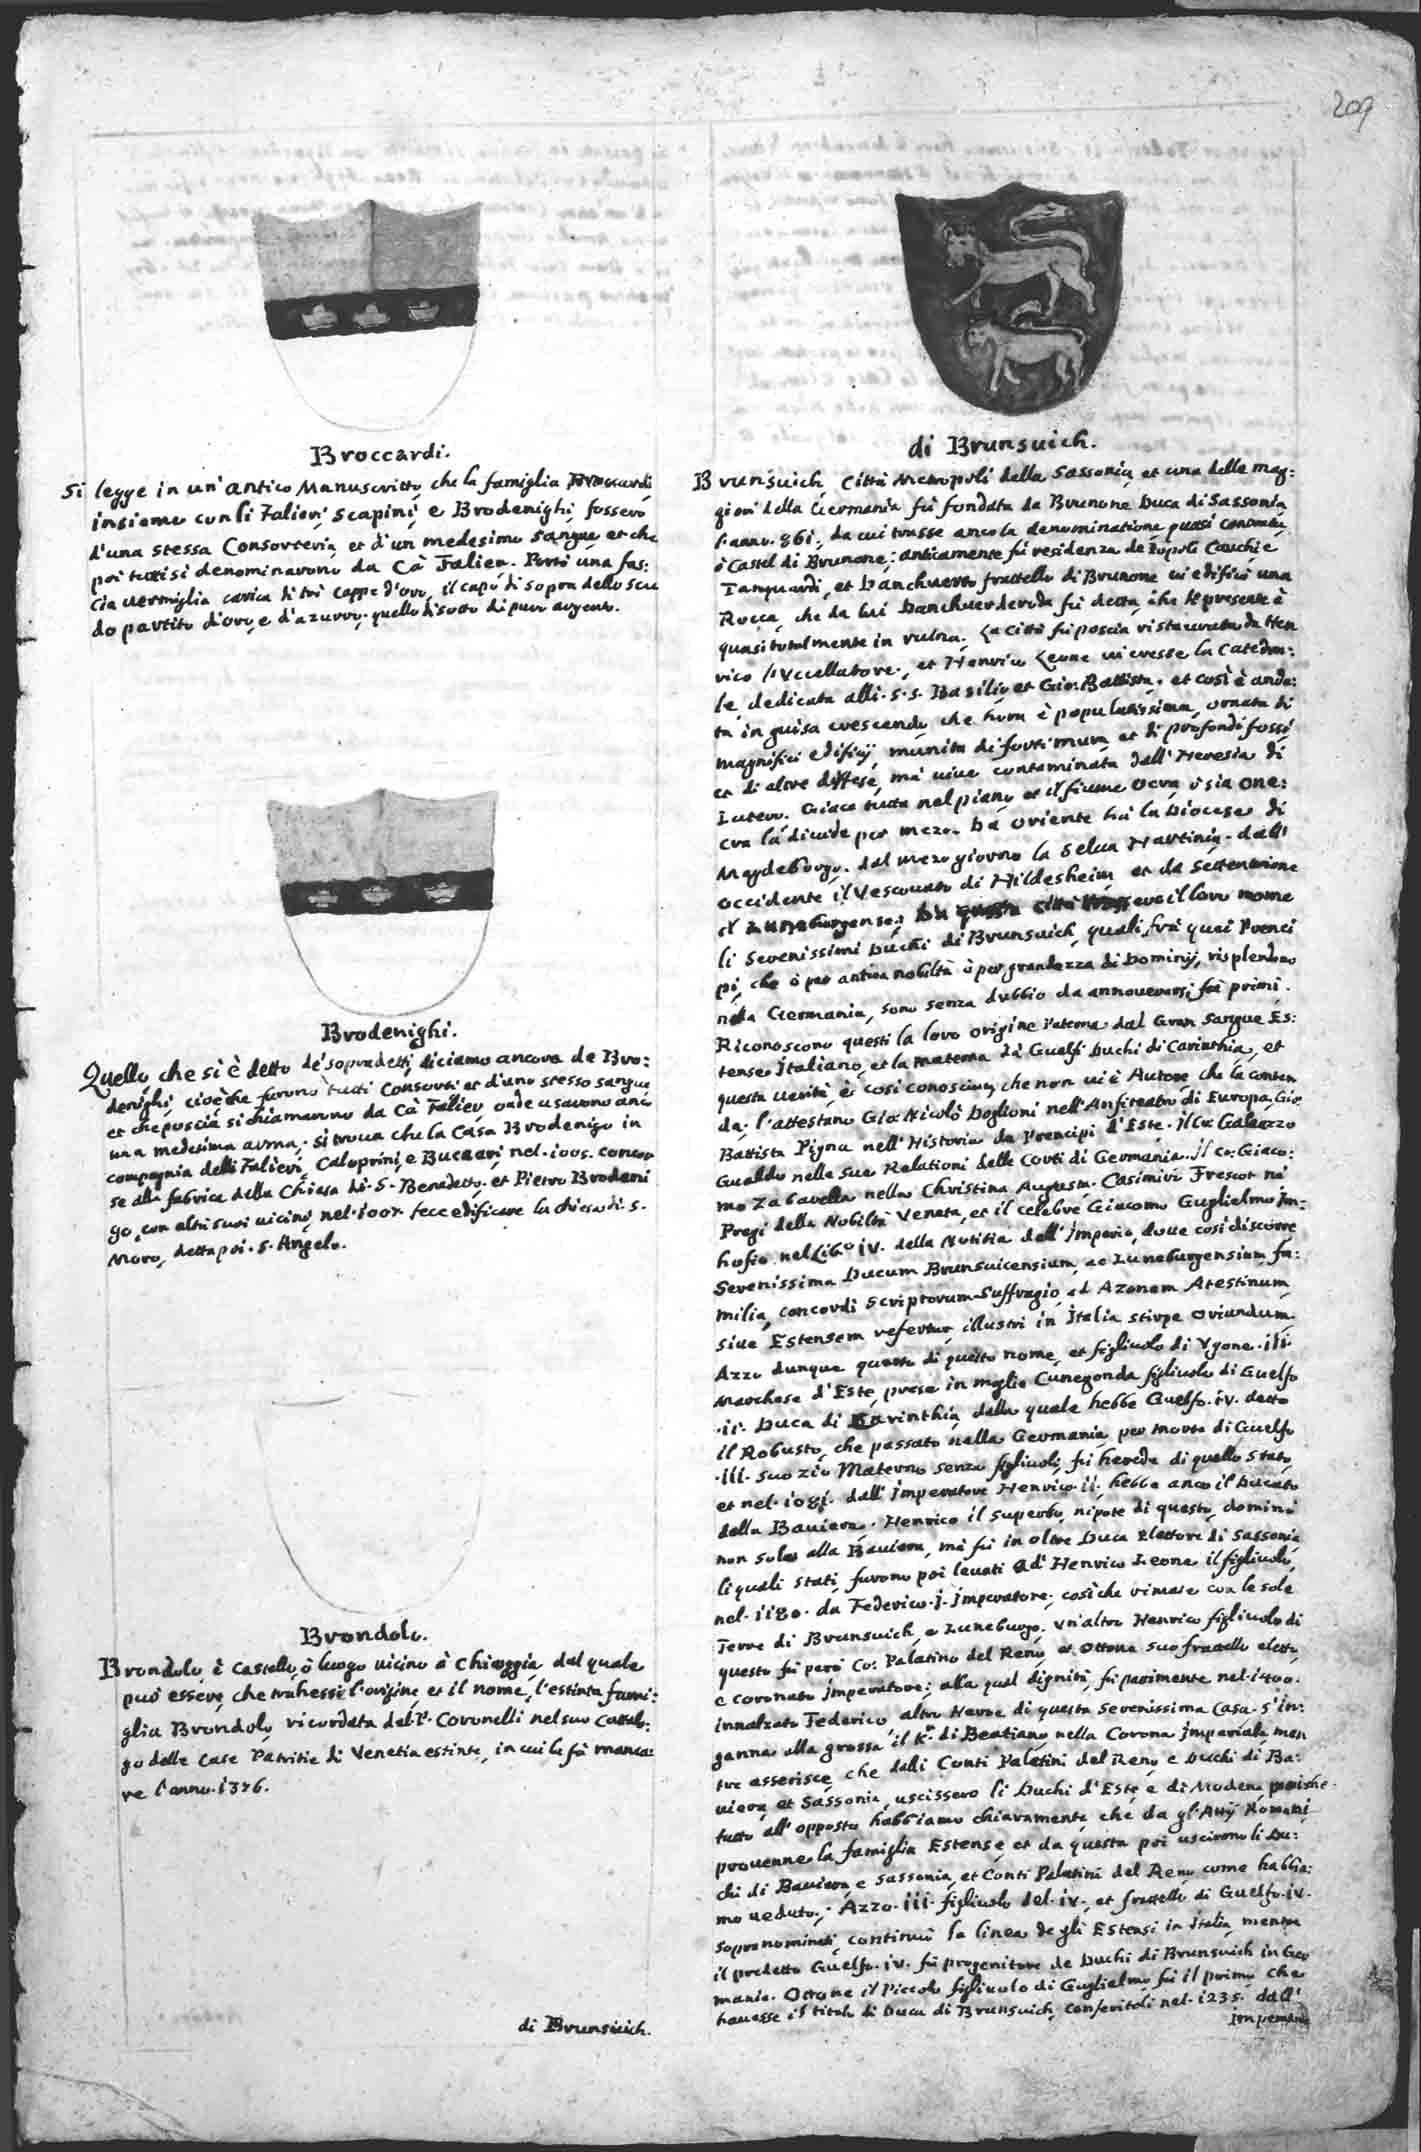 209
Broccardi.
Si legge in un'antico Manuscritto, che la famiglia Broccardi,
insieme con li Falieri, Scapini, e Brodenighi, fossero
d'una stessa Consorteria, et d'un medesimo sangue, et che
poi tutti si denominarono da Cà Falier. Portò una fas:
cia vermiglia carica di trè cappe d'oro, il capo di sopra dello scu
do partito d'oro, e d'azurro, quello di sotto di puro argento.
Brodenighi.
Quello che si è detto de' sopradetti, diciamo ancora de Bro:
denighi, cioè che furono tutti Consorti et d'uno stesso sangue
et che poscia si chiamarono da Cà Falier, onde usarono anco
una medesima arma. Si troua che la Casa Brodenigo in
compagnia delli Falieri, Caloprini, e Bucaeri nel. 1005. concor
se alla fabrica della Chiesa di. S. Benedetto. et Pietro Brodeni
go, con altri suoi uicini, nel. 1007. fece edificare la chiesa di. S.
Moro, detta poi. S. Angelo.
Brondolo.
Brondolo, è Castello, ò luogo uicino à Chioggia, dal quale
può essere, che trahesse l'origine, et il nome, l'estinta fami:
glia Brondolo, ricordata dal P. Coronelli nel suo Catalo:
go delle Case Patritie di Venetia estinte, in cui la fà manca:
re l'anno. 1376.
di Brunsuich.
di Brunsuich.
Brunsuich, Città Metropoli della Sassonia, et una delle mag:
giori della Germania fù fondata da Brunone Duca di Sassonia,
l'anno. 861., da cui trasse ancola denominatione, quasi
ò Castel di Brunone; anticamente fù residenza de Popoli Cauchi, e
et Danchuerto frattello di Brunone ui edificò una
Rocca, che da lui Danchuerderoda fù detta, che le presente è
quasi totalmente in ruina. La Città fù poscia ristaurata da Hen
rico l'Vccellatore, et Henrico Leone ui eresse la Catedra:
le dedicata alli. S. S. Basilio, et Gio: Battista. et così è anda:
ta in guisa crescendo, che hora è populatissima, ornata di
magnifici edificij, munita di forti mura, et di profondi fossi,
et di altre diffese, mà uiue contaminata dall'Heresia di
Lutero. Giace tutta nel piano, et il fiume Ocra, ò sia One:
cra la diuide per mezo. Da Oriente hà la Diocese di
Magdeburgo. dal mezo giorno la Selua Hartinia. dall'
Occidente il Vescouato di Hildesheim, et da Settentrione
il Luneburgense. Da questa Città trassero il loro nome
li Serenissimi Duchi di Brunsuich, quali, frà quei Prenci
pi, che ò per antica nobiltà, ò per grandezza di Dominij, risplendono
nella Germania, sono senza dubbio da annouerarsi frà primi.
Riconoscono questi la loro origine Paterna dal Gran Sangue Es:
tense Italiano, et la materna dà Guelfi Duchi di Carinthia, et
questa uerità è così conosciuta, che non ui è Autore, che la conten
da; l'attestano Gio: Nicolò Doglioni nell'Anfiteatro di Europa, Gio:
Battista Pigna nell'Historia de Prencipi d'Este. Il Co: Galeazzo
Gualdo nelle sue Relationi delle Corti di Germania. il Co: Giaco:
mo Zabarella nella Christina Augusta. Casimiri Frescot ne
Pregi della Nobiltà Veneta, et il celebre Giacomo Guglielmo Im:
hofio nel Lib.o IV. della Notitia dell'Imperio, doue così discorre
Serenissima Ducum Brunsuicensium, ac Luneburgensium fa:
milia, concordi scriptorum suffragio, ad Azonem Atestinum,
siue Estensem refertur, illustri in Italia stirpe oriundum.
Azzo dunque quarto di questo nome, et figliuolo di Vgone. III.
Marchese d'Este, prese in moglie Cunegonda figliuola di Guelfo
.II. Duca di Carinthia, dalla quale hebbe Guelfo. IV. detto
il Robusto, che passato nella Germania, per morte di Guelfo
.III. suo zio Materno senza figliuoli, fù herede di quello stato,
et nel. 1081. dall'Imperatore Henrico. II., hebbe anco il Ducato
della Bauiera. Henrico il Superbo, nipote di questo, dominò
non solo alla Bauiera, mà fù in oltre Duca Elettore di Sassonia,
li quali stati, furono poi leuati ad Henrico Leone il figliuolo,
nel. 1180. da Federico. I. Imperatore; così che rimase con le sole
Terre di Brunsuich, e Luneburgo. Vn'altro Henrico figliuolo di
questo fù però Co: Palatino del Reno, et Ottone suo frattello eletto,
e coronato Imperatore; alla qual dignità, fù parimente nel. 1400.
innalzato Federico, altro Heroe di questa Serenissima Casa. S'in:
ganna alla grossa il K.r di Beatiano nella Corona Imperiale, men
tre asserisce, che dalli Conti Palatini del Reno, e Duchi di Ba:
uiera, et Sassonia, uscissero li Duchi d'Este, e di Modena, poiche
tutto all'opposto habbiamo chiaramente, che da gl'Attij Romani
prouenne la famiglia Estense, et da questa poi uscirono li Du:
chi di Bauiera, e Sassonia, et Conti Palatini del Reno, come habbia:
mo ueduto. Azzo. III. figliuolo del. IV., et frattello di Guelfo. IV.
sopranominati, continuò la linea de gli Estensi in Italia, mentre
il predetto Guelfo. IV. fù progenitore de Duchi di Brunsuich in Ger
mania. Ottone il Piccolo figliuolo di Guglielmo, fù il primo, che
hauesse il titolo di Duca di Brunsuich, conferitoli nel. 1235. dall'